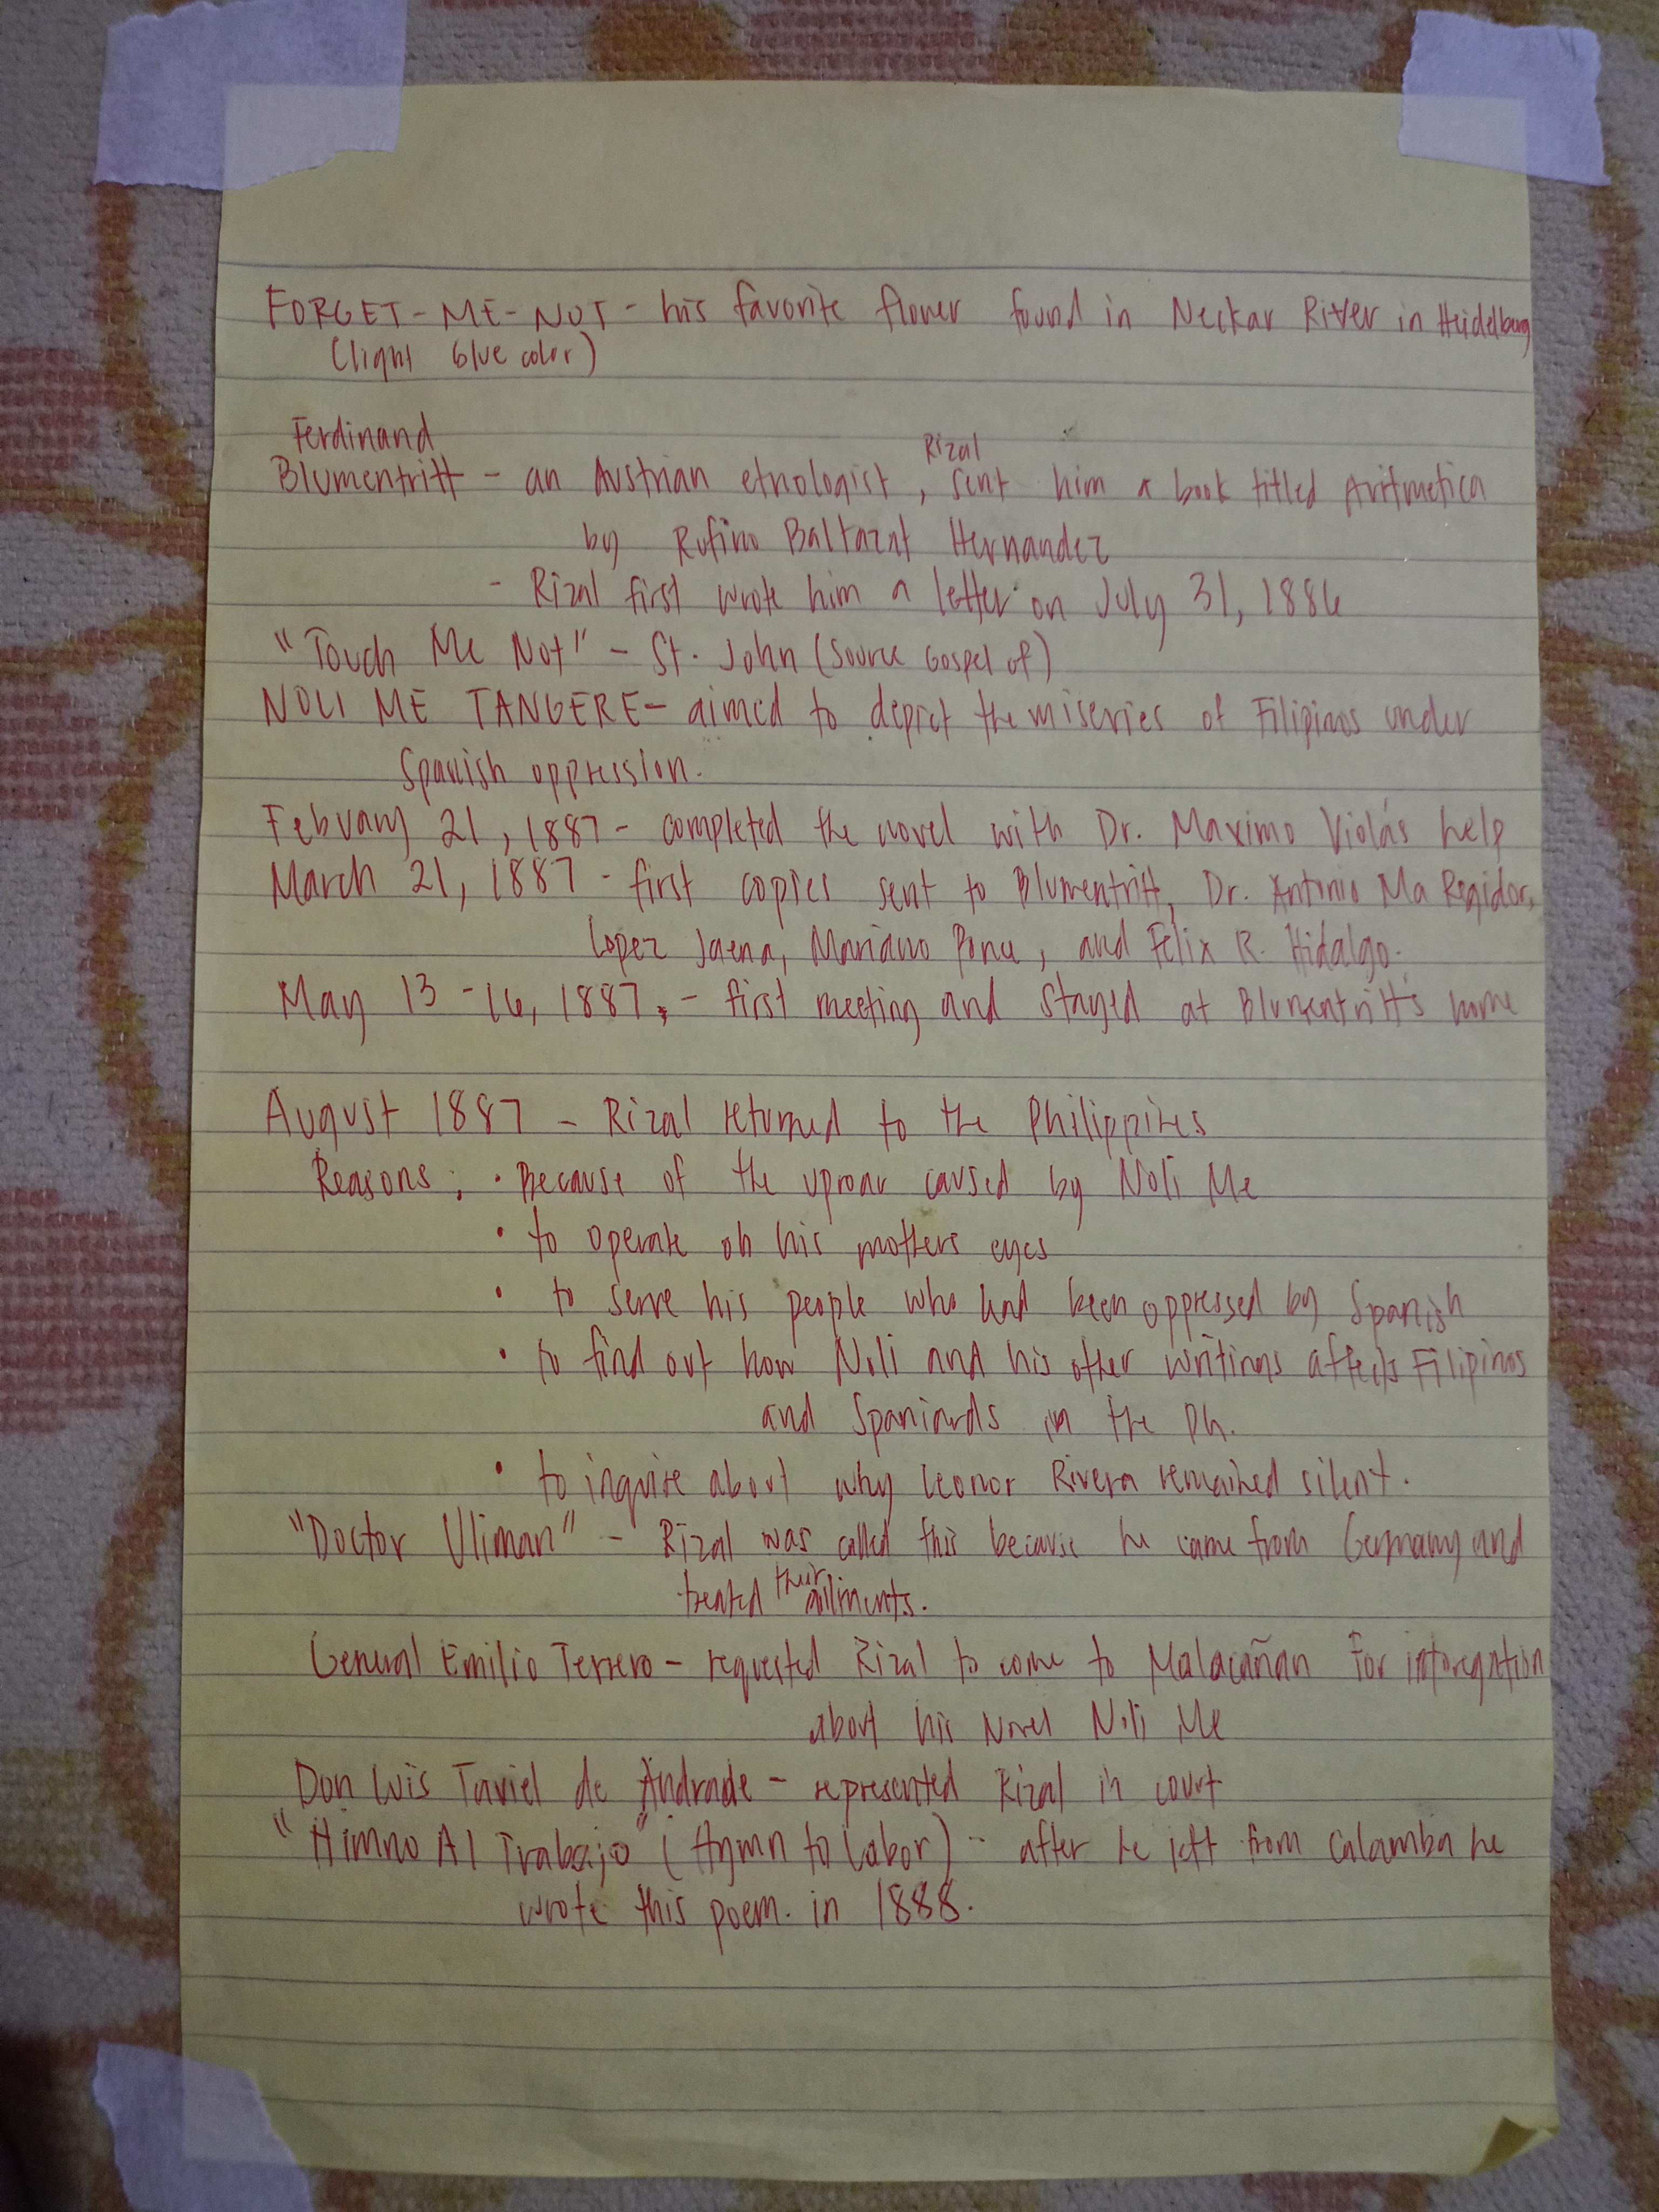 FORGET-ME-NOT - his favorite flower found in Neckar River in Heidelberg
(light blue color)
Ferdinand
Blumentritt - an Austrian etnologist, Rizal sent him a book titled Aritmetica
by Rufino Baltazat Hernandez
- Rizal first wrote him a letter on July 31, 1886
"Touch Me Not" - St. John (Source Gospel of)
NOLI ME TANGERE - aimed to depict the miseries of Filipinos under
Spanish oppression.
February 21, 1887 - completed the novel with Dr. Maximo Viola's help
March 21, 1887 - first copies sent to Blumentritt, Dr. Antonio Ma Regidor,
Lopez Jaena, Mariano Ponce, and Felix R. Hidalgo.
May 13 - 16, 1887, - first meeting and stayed at Blumentritt's home
August 1887 - Rizal returned to the Philippines
Reasons : • Because of the uproar caused by Noli Me
• to operate on his mothers eyes
• to serve his people who had been oppressed by Spanish
• to find out how Noli and his other writings affects Filipinos
and Spaniards in the Ph.
• to inquire about why Leonor Rivera remained silent.
"Doctor Uliman" - Rizal was called this because he came from Germany and
treated their ailments.
General Emilio Terrero - requested Rizal to come to Malacañan for intoregation
about his Novel Noli Me
Don Luis Taviel de Andrade - represented Rizal in court
"Himno Al Trabajo" (Hymn to Labor) - after he left from Calamba he
wrote this poem. in 1888.